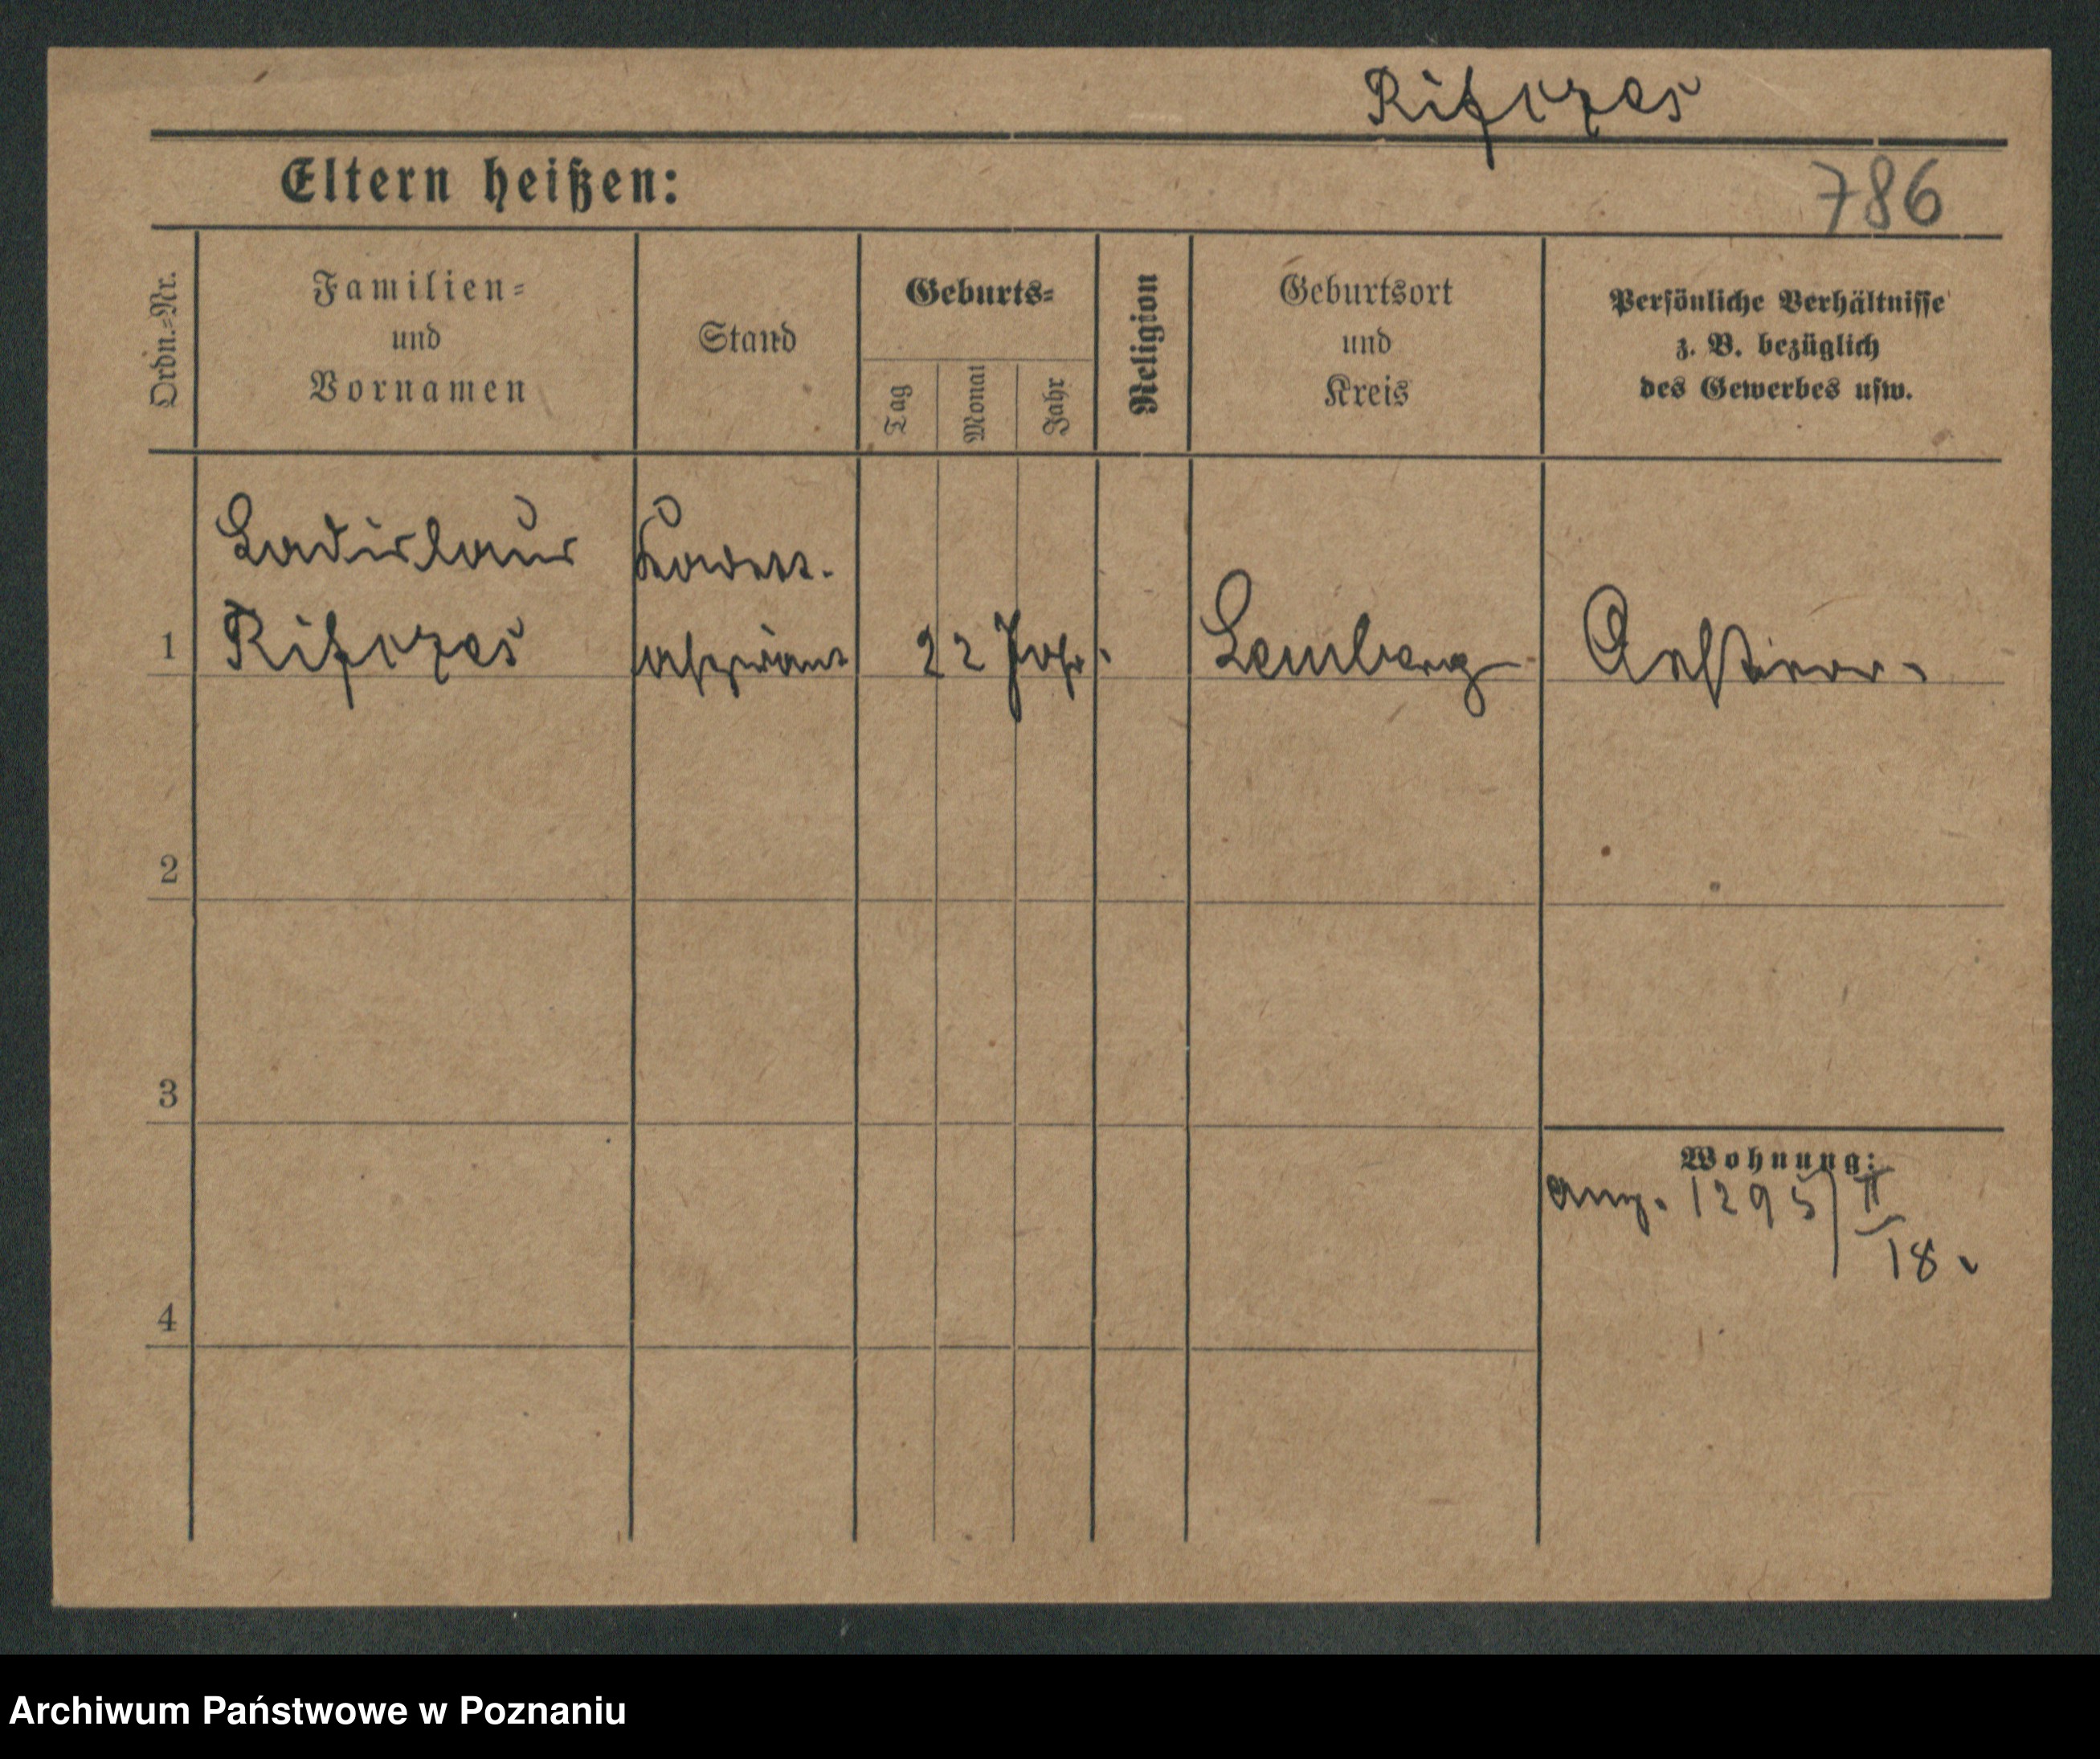 Rifczes
Eltern heißen:
786
Ordn.=Nr.
Familien=
und
Vornamen
Stand
Geburts=
Tag
Monat
Jahr
Religion
Geburtsort
und
Kreis
Persönliche Verhältnisse
z. B. bezüglich
des Gewerbes usw.
1
Ladislaus
Rifczes
Kadett-
aspirant
22 Jahr.
Lemberg
2
3
4
Wohnung:
ang. 1295/II
18.
Archiwum Państwowe w Poznaniu